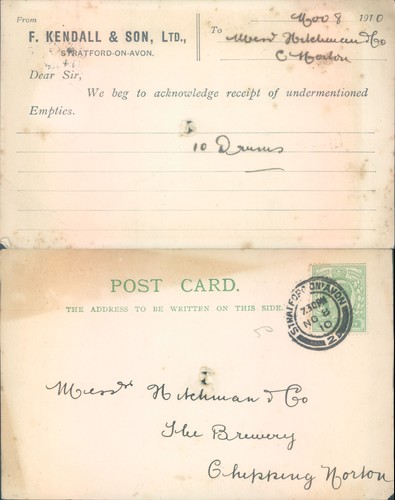 From
F. KENDALL & SON, LTD.,
STRATFORD-ON-AVON.
Nov 8 1910
To Messrs Hitchman & Co
C Norton
Dear Sir,
We beg to acknowledge receipt of undermentioned
Empties.
10 Drums
POST CARD.
THE ADDRESS TO BE WRITTEN ON THIS SIDE.
STRATFORD-ON-AVON
7.30PM
NO 8
10
Messrs Hitchman & Co
The Brewery
Chipping Norton